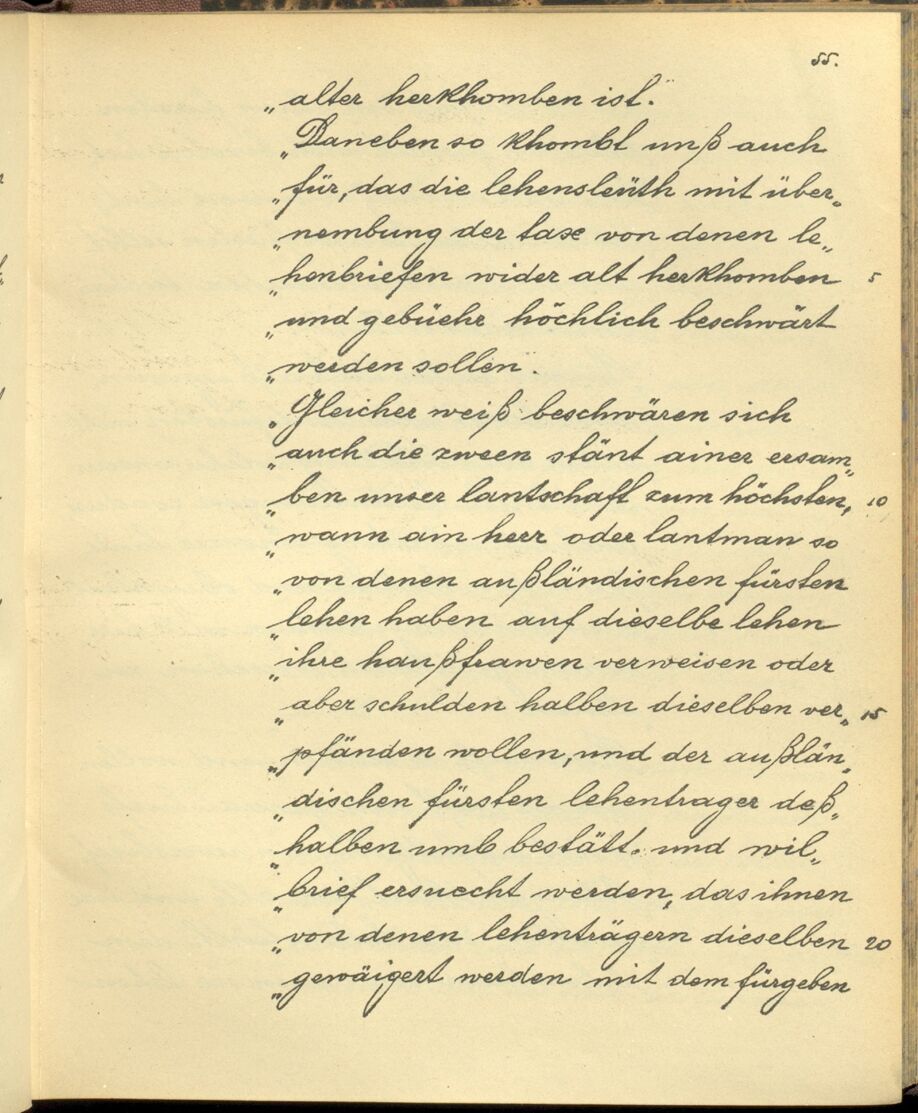 55.
„alter herkhomben ist.“
„Daneben so khombt unß auch
„für, das die lehensleüth mit über„
„nembung der taxe von denen le„
„henbriefen wider alt herkhomben 5
„und gebüehr höchlich beschwärt
„werden sollen“.
„Gleicher weiß beschwären sich
„auch die zween stänt ainer ersam„
„ben unser lantschaft zum höchsten, 10
„wann ain herr oder lantman so
„von denen außländischen fürsten
„lehen haben auf dieselbe lehen
„ihre haußfrawen verweisen oder
„aber schulden halben dieselben ver„ 15
„pfänden wollen, und der außlän„
„dischen fürsten lehentrager deß„
„halben umb bestätt. und wil„
„brief ersuecht werden, das ihnen
„von denen lehenträgern dieselben 20
„gewäigert werden mit dem fürgeben